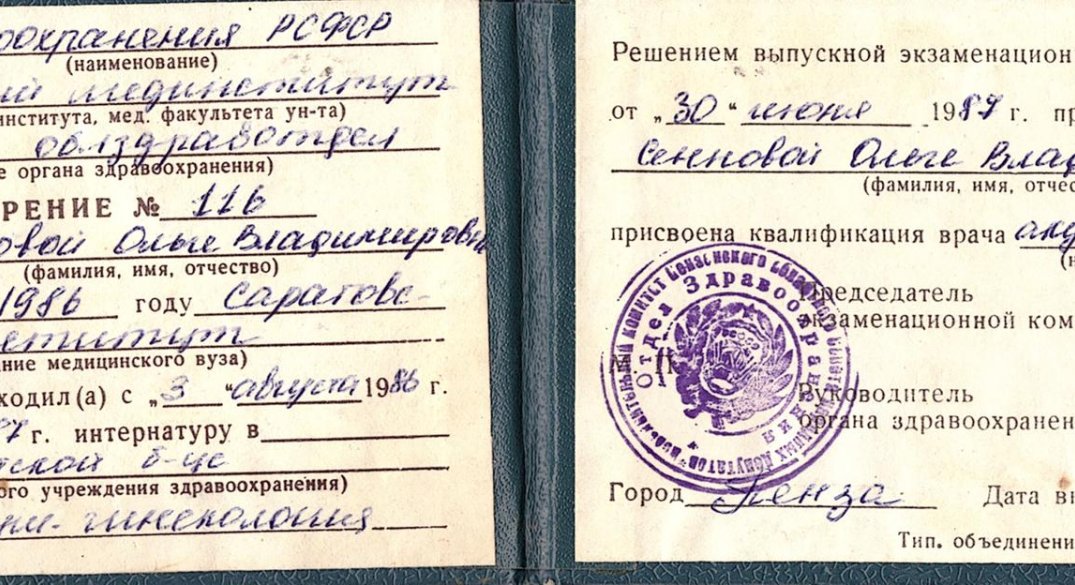 оохранения РСФСР
(наименование)
ий мединститут
института, мед. факультета ун-та)
облздравотдел
е органа здравоохранения)
РЕНИЕ № 116
овой Ольге Владимировне
(фамилия, имя, отчество)
1986 году Саратовс-
ститут
ние медицинского вуза)
ходил(а) с „3 “ августа 1986 г.
г. интернатуру в
ской б-це
ого учреждения здравоохранения)
гинекология
Решением выпускной экзаменацион
от „30“ июня 1987 г. пр
Сенновой Ольге Влад
(фамилия, имя, отчес
присвоена квалификация врача
Председатель
экзаменационной ком
М. П.
Отдел Здравоохранения
Руководитель
органа здравоохранен
Город Пенза Дата в
Тип. объединени